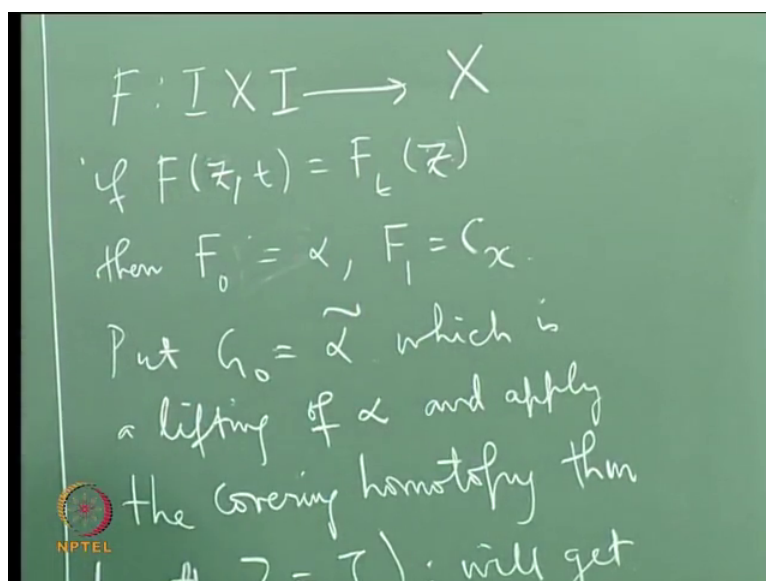 F : I X I ⟶ X
if F(z, t) = F_t(z)
then F_0 = α, F_1 = C_x.
Put G_0 = α̃ which is
a lifting of α and apply
the covering homotopy thm
Z = I). will get
NPTEL